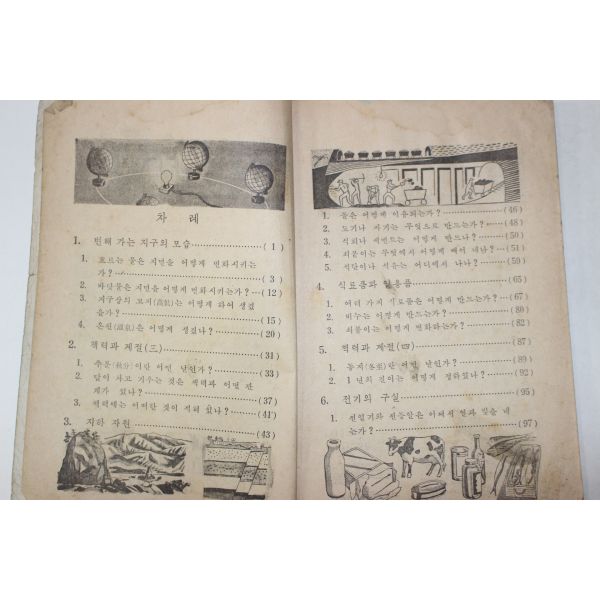 차 례
1. 변해 가는 지구의 모습 ( 1 )
1. 흐르는 물은 지면을 어떻게 변화시키는
가? ( 3 )
2. 바닷물은 지면을 어떻게 변화시키는가? (12)
3. 지구상의 고지(高地)는 어떻게 하여 생겼
을가? (15)
4. 온천(溫泉)은 어떻게 생겼나? (20)
2. 책력과 계절(三) (31)
1. 추분(秋分)이란 어떤 날인가? (33)
2. 달이 차고 기우는 것은 책력과 어떤 관
계가 있나? (37)
3. 책력에는 어떠한 것이 적혀 있나? (41)
3. 지하 자원 (43)
1. 돌은 어떻게 이용되는가? (46)
2. 도기나 자기는 무엇으로 만드는가? (48)
3. 석회나 세멘트는 어떻게 만드나? (50)
4. 쇠붙이는 무엇에서 어떻게 빼어 내나? (51)
5. 석탄이나 석유는 어디에서 나나? (59)
4. 식료품과 일용품 (65)
1. 여러 가지 식료품은 어떻게 만드는가? (67)
2. 비누는 어떻게 만드는가? (80)
3. 쇠붙이는 어떻게 변화하는가? (82)
5. 책력과 계절(四) (87)
1. 동지(冬至)란 어떤 날인가? (89)
2. 1 년의 길이는 어떻게 정하였나? (92)
6. 전기의 구실 (95)
1. 전열기와 전등알은 어째서 열과 빛을 내
는가? (97)